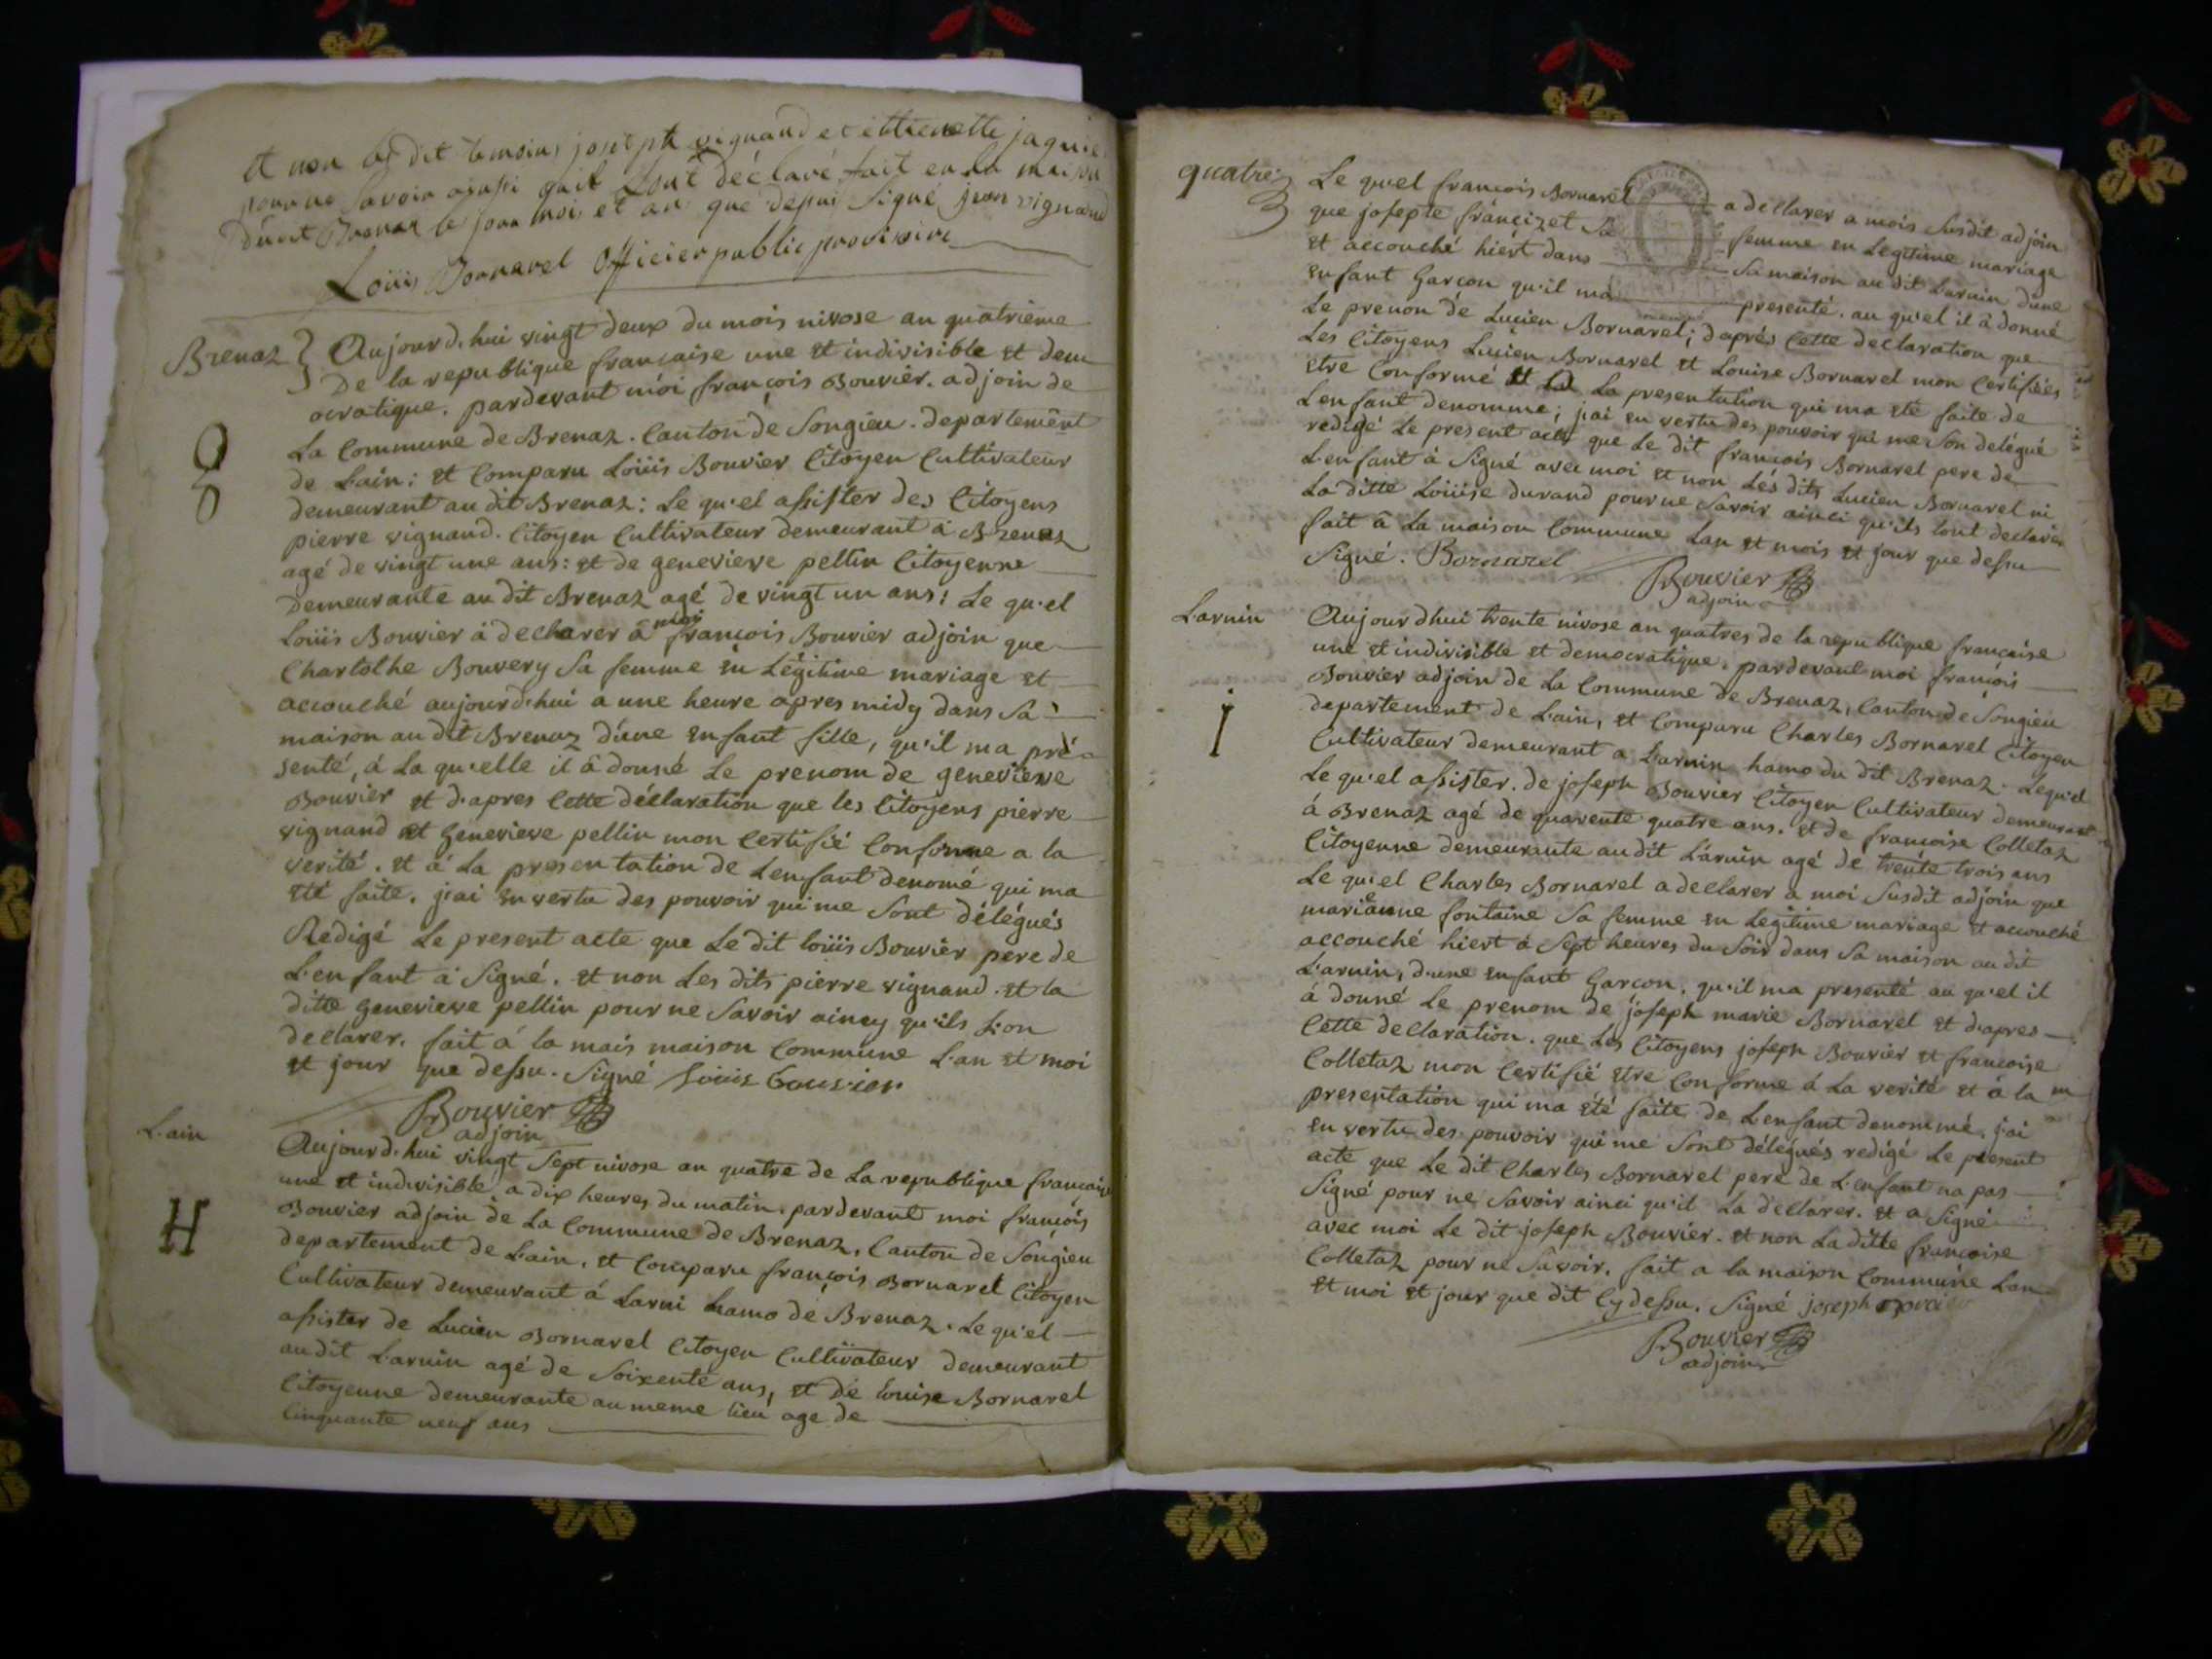 et non les dit temoins joseph vignand et ettienette jaquie
pour ne savoir ainsi quil Lont déclaré fait en la maison
dudit Brenaz les jour moi et an que dessui Signé jean vignand
Loüis Bornarel Officier public provisoire
Brenaz } Aujourd.hui vingt deux du mois nivose an quatrieme
De la republique francaise une et indivisible et dem
ocratique. pardevant moi françois Bouvier. adjoin de
La Commune de Brenaz. Canton de Songieu. departement
de L'ain; et Comparu Loüis Bouvier Citoyen Cultivateur
demeurant au dit Brenaz: Le qu'el assister des Citoyens
pierre vignand. Citoyen Cultivateur demeurant à Brenaz
agé de vingt une ans: et de genevieve pellin Citoyenne
Demeurante au dit Brenaz agé de vingt un ans; Le qu'el
Loüis Bouvier à declarer à moi françois Bouvier adjoin que
Charlothe Bouvery Sa femme en Légitime mariage et
accouché aujourd.hui a une heure apres midy dans Sa
maison au dit Brenaz d'une enfant fille, qu'il ma pré
senté, à La qu'elle il à donné Le prenom de genevieve
Bouvier et d'apres Cette déclaration que les Citoyens pierre
vignand et Genevieve pellin mon Certifié Conforme a la
verité. et à La presentation de L'enfant denomé qui ma
été faite. j'ai en vertu des pouvoir qui me Sont délégués
Rédigé Le present acte que Le dit loüis Bouvier pere de
L'enfant à Signé. et non Les dits pierre vignand. et la
ditte Genevieve pellin pour ne Savoir aincy qu'ils L'on
declarer. fait à la mais maison Commune L'an et moi
et jour que dessu. Signé Louis bouvier
Bouvier
adjoin
L'ain
8
Aujourd.hui vingt Sept nivose an quatre de La republique francaise
une et indivisible a dix heures du matin. pardevant moi françois
Bouvier adjoin de La Commune de Brenaz, Canton de Songieu
H
departement de L'ain, et Comparu françois Bornarel Citoyen
Cultivateur demeurant à Larni hamo de Brenaz. Le qu'el
assister de Lucien Bornarel Citoyen Cultivateur demeurant
au dit L'arnin agé de Soixente ans, et de Louise Bornarel
Citoyenne demeurante au meme lieu age de
Cinquante neuf ans
quatre
Le qu'el françois Bornarel a declarer a mois Susdit adjoin
que josepte françizet Sa femme en Legitime mariage
et accouché hiert dans Sa maison au dit L'arnin d'une
enfant Garcon qu'il ma presenté. au qu'el il â donné
Le prenon de Lucien Bornarel; d'aprés Cette declaration que
Les Citoyens Lucien Bornarel et Louise Bornarel mon Certifiées
etre Conformé et La presentation qui ma été faite de
L'enfant denomme; j'ai en vertu des pouvoir qui me Son delégué
redigé Le present acte que Le dit francois Bornarel pere de
L'enfant à Signé avec moi et non Lés dits Lucien Bornarel ni
La ditte Loüise durand pour ne Savoir ainci qu'ils Lont declarer
fait â La maison Commune Lan et mois et jour que dessu
Signé. Bornarel
Bouvier
adjoin
L'arnin
Aujourd'hui trente nivose an quatres de la republique française
une et indivisible et democratique. pardevant moi françois
Bouvier adjoin de La Commune de Brenaz, Canton de Songieu
departement de L'ain, et Comparu Charles Bornarel Citoyen
I
Cultivateur demeurant a L'arnin hamo du dit Brenaz. Lequ'el
Le qu'el assister. de joseph Bouvier Citoyen Cultivateur demeurant
á Brenaz agé de quarente quatre ans. et de françoise Colletaz
Citoyenne demeurante audit L'arnin agé de trente trois ans
Le qu'el Charles Bornarel a declarer a moi Susdit adjoin que
marianne fontaine Sa femme en Legitime mariage et accouché
accouché hiert à Sept heures du Soir dans Sa maison au dit
L'arnin, d'une enfant Garcon, qu'il ma presenté au qu'el il
á donné Le prenom de joseph marie Bornarel et d'apres
Cette declaration. que Les Citoyens joseph Bouvier et francoise
Colletaz mon Certifié etre Conforme á La verité et á la
presentation qui ma été faite de L'enfant denommé. j'ai
en vertu des pouvoir qui me Sont délégués redigé Le present
acte que Le dit Charles Bornarel pere de L'enfant na pas
Signé pour ne Savoir ainci qu'il La declarer. et a Signé
avec moi Le dit joseph Bouvier. et non La ditte françoise
Colletaz pour ne Savoir. fait a la maison Commune Lan
et moi et jour que dit Cydessu. Signé joseph
Bouvier
adjoin